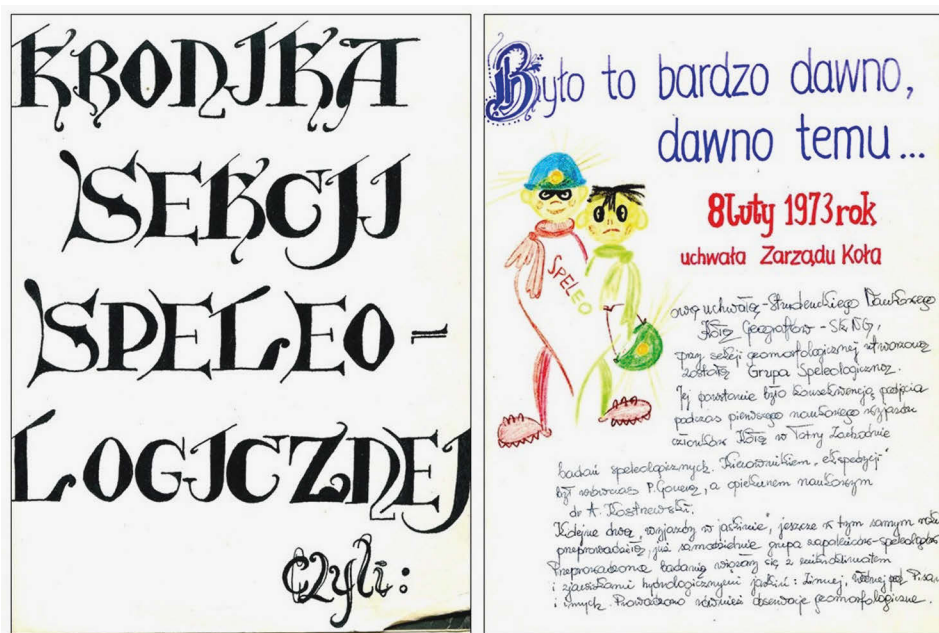 KRONIKA
SEKCJI
SPELEO-
LOGICZNEJ
czyli:
Było to bardzo dawno,
dawno temu...
8 luty 1973 rok
uchwała Zarządu Koła
SPELEO
ową uchwałą - Studenckiego Naukowego
Koła Geografów - SKNG,
przy sekcji geomorfologicznej utworzona
została Grupa Speleologiczna.
Jej powstanie było konsekwencją podjęcia
podczas pierwszego naukowego wyjazdu
członków Koła w Tatry Zachodnie
badań speleologicznych. Kierownikiem "ekspedycji"
był wówczas P. , a opiekunem naukowym
dr A. Kostrzewski.
Kolejne dwa "wyjazdy w jaskinie", jeszcze w tym samym roku
przeprowadziła, już samodzielnie grupa zapaleńców-speleologów.
Przeprowadzone badania wiązały się z mikroklimatem
i zjawiskami hydrologicznymi jaskiń: Zimnej, Wodnej pod Pisaną
i innych. Prowadzono również obserwacje geomorfologiczne.